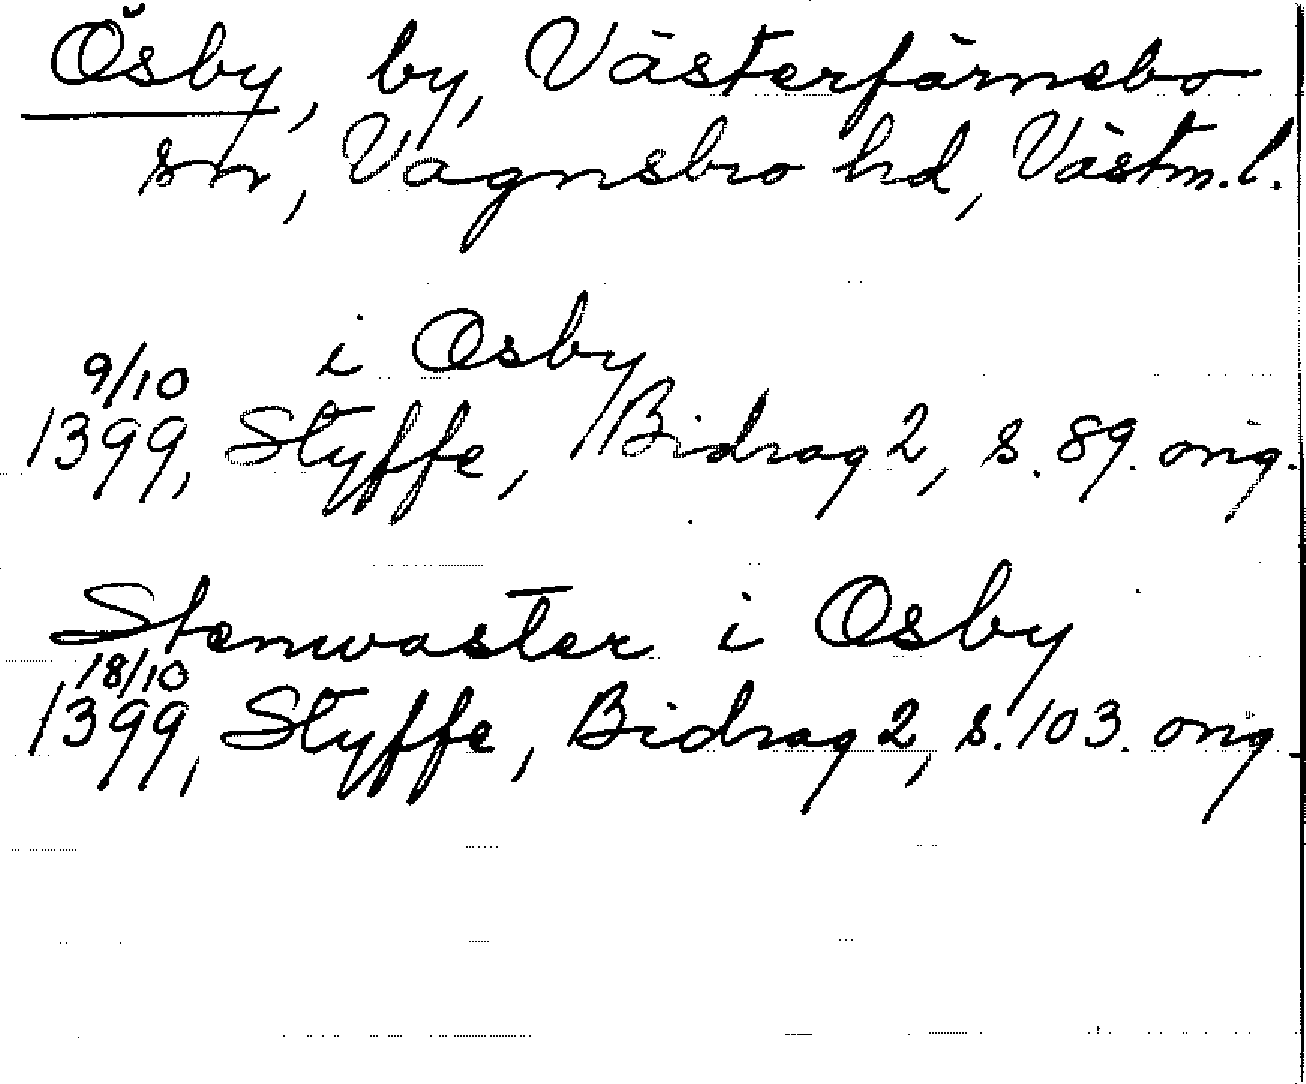 Ösby, by, Västerfärnebo
sn, Vagnsbro hd, Västm. l.
i Osby
9/10
1399, Styffe, Bidrag 2, s. 89. orig.
Stenwaster i Osby
18/10
1399, Styffe, Bidrag 2, s. 103. orig